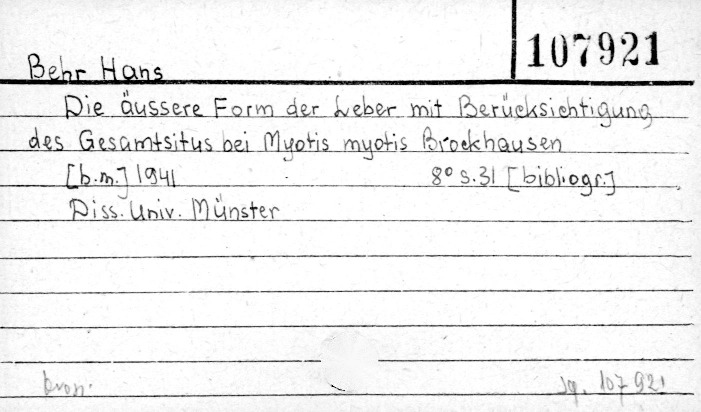 107921
Behr Hans
Die äussere Form der Leber mit Berücksichtigung
des Gesamtsitus bei Myotis myotis Brockhausen
[b.m.] 1941 8° s.31 [bibliogr.]
Diss. Univ. Münster
sq. 107 921